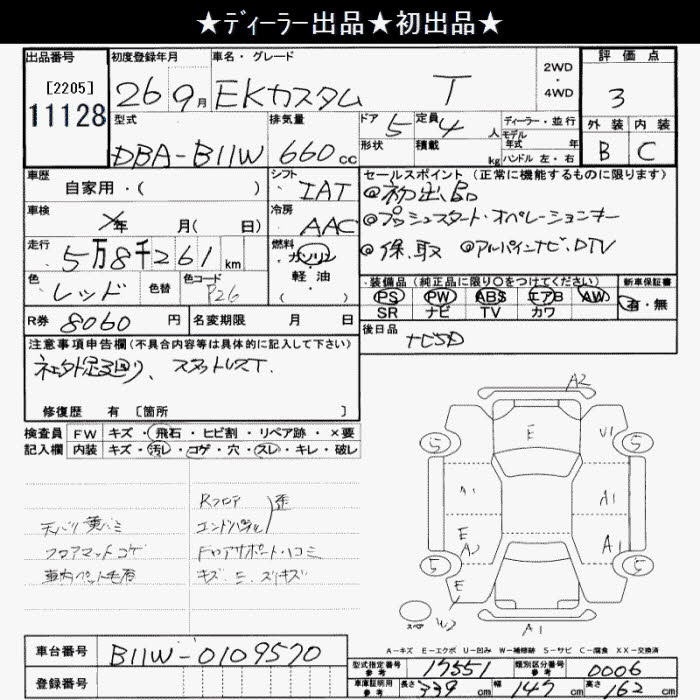 ★ディーラー出品★初出品★
出品番号 初度登録年月 車名・グレード 2WD・4WD 評価点
[2205]
11128
26 9月 EKカスタム T 3
型式 排気量 ドア 5 定員 4人 ディーラー・並行 外装 内装
モデル年式 年
DBA-B11W 660cc 形状 積載 kg ハンドル 左・右 B C
車歴 シフト セールスポイント (正常に機能するものに限ります)
自家用・( ) IAT ◎初出品
車検 冷房 ◎プッシュスタート・オペレーションキー
年 月( 日) AAC
走行 燃料 ◎保、取 ◎アルパインナビ、DTV
5万8千261km ガソリン
軽・油
( )
色 色替 色コード 装備品 (純正品に限り○をつけてください) 新車保証書
レッド P26 PS PW ABS エアB AW 有・無
SR ナビ TV カワ
R券 8060円 名変期限 月 日 後日品
ナビSD
注意事項申告欄(不具合内容等は具体的に記入して下さい)
社外足廻り、
修復歴 有 [箇所 ]
検査員 FW キズ・飛石・ヒビ割・リペア跡・×要
記入欄 内装 キズ・汚レ・コゲ・穴・スレ・キレ・破レ
Rフロア 歪
天バリ黄バミ エンドパネル
フロアマットコゲ Fロアサポート・凹ミ
車内ペット毛有 キズ・ミ・スリキズ
A2
E
U1
5 5
A1
E
A1
5 5
E
スペア W2
A1
A-キズ E-エクボ U-凹み W-補修跡 S-サビ C-腐食 XX-交換済
車台番号 B11W-0109570 型式指定番号 参考 17551 類別区分番号 参考 0006
登録番号 車庫証明用 参考 長さ 339cm 幅 147cm 高さ 162cm